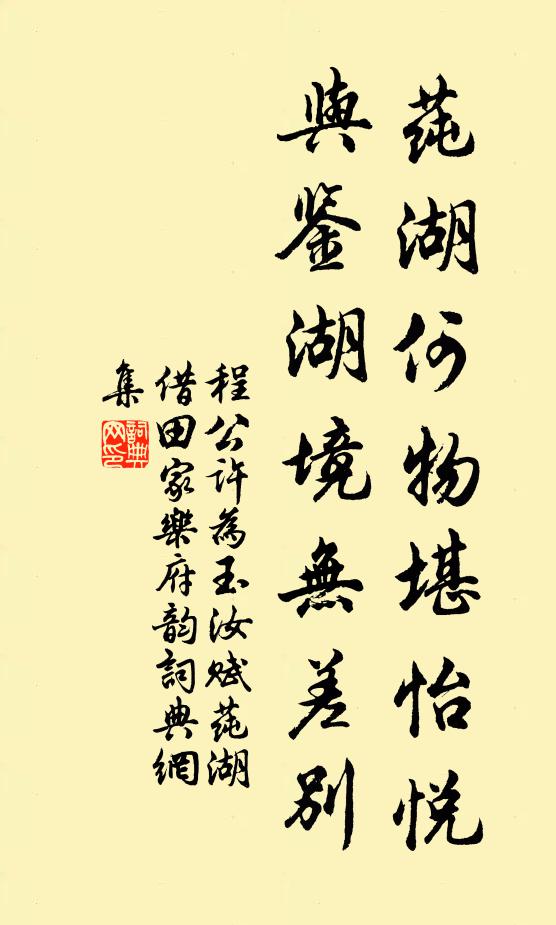 莼湖何物堪怡悦
與鉴湖境無差别
程公許為玉汝赋莼湖
借田家樂府韵詞典網
集
詞典
网印